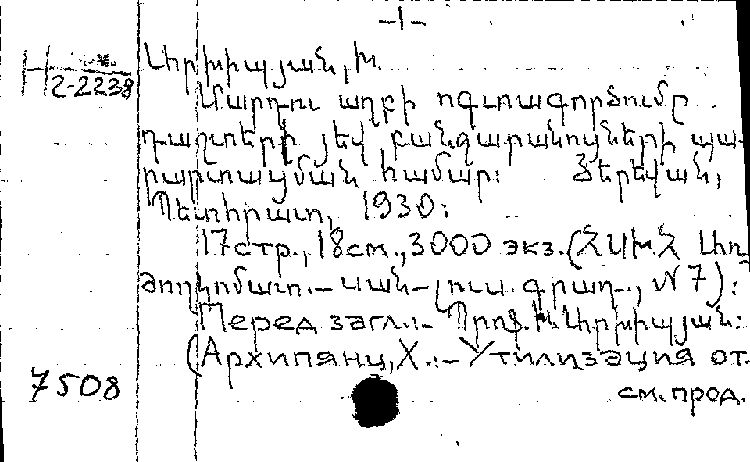 -1-
Արխիպյան, Խ.
2-2238
Մարդու աղբի ոգտագործումը
դաշտերի յեվ բանջարանոցների պա-
րարտացման համար: Յերեվան,
Պետհրատ, 1930:
17 стр., 18 см., 3000 экз. (ՀՍԽՀ
ժողկոմատ.– սան-լուս. գրադ., № 7):
Перед загл.:– Պրոֆ. Խ. Արխիպյան:
(Архипянц, Х.:– Утилизация от.
7508
см. прод.